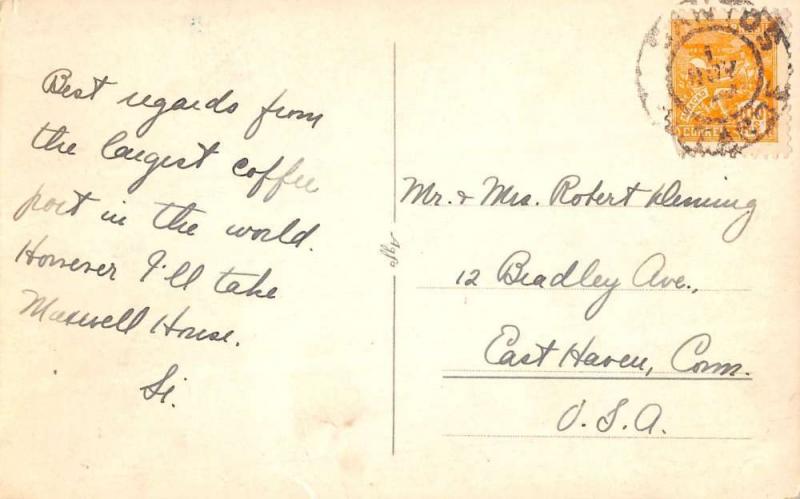 Best regards from
the largest coffee
port in the world.
However I'll take
Maxwell House.
Si.
SANTOS
CORREIO
Mr. & Mrs. Robert Fleming
12 Bradley Ave.,
East Haven, Conn.
U.S.A.